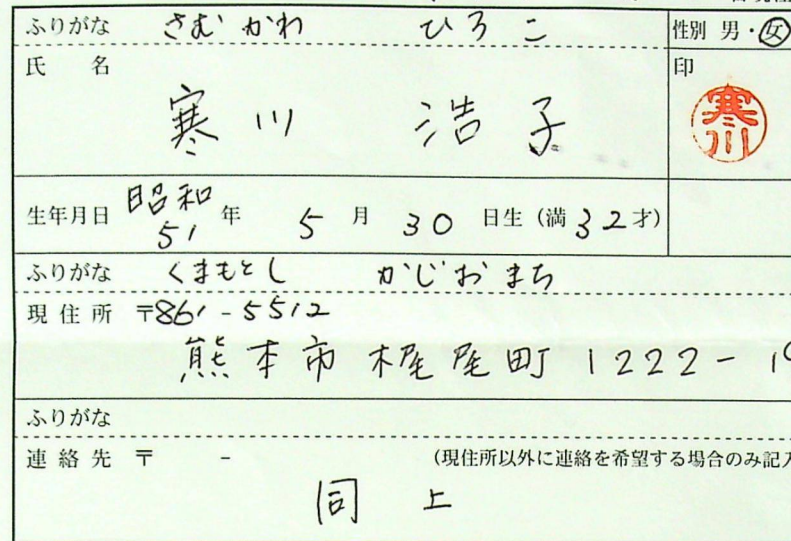 ふりがな さむかわ ひろこ 性別 男・女
氏名 寒川 浩子 印 寒川
生年月日 昭和51年 5月 30日生 (満32才)
ふりがな くまもとし かじおまち
現住所 〒861-5512
熊本市梶尾町1222-1
ふりがな
連絡先 〒 - (現住所以外に連絡を希望する場合のみ記入
同上